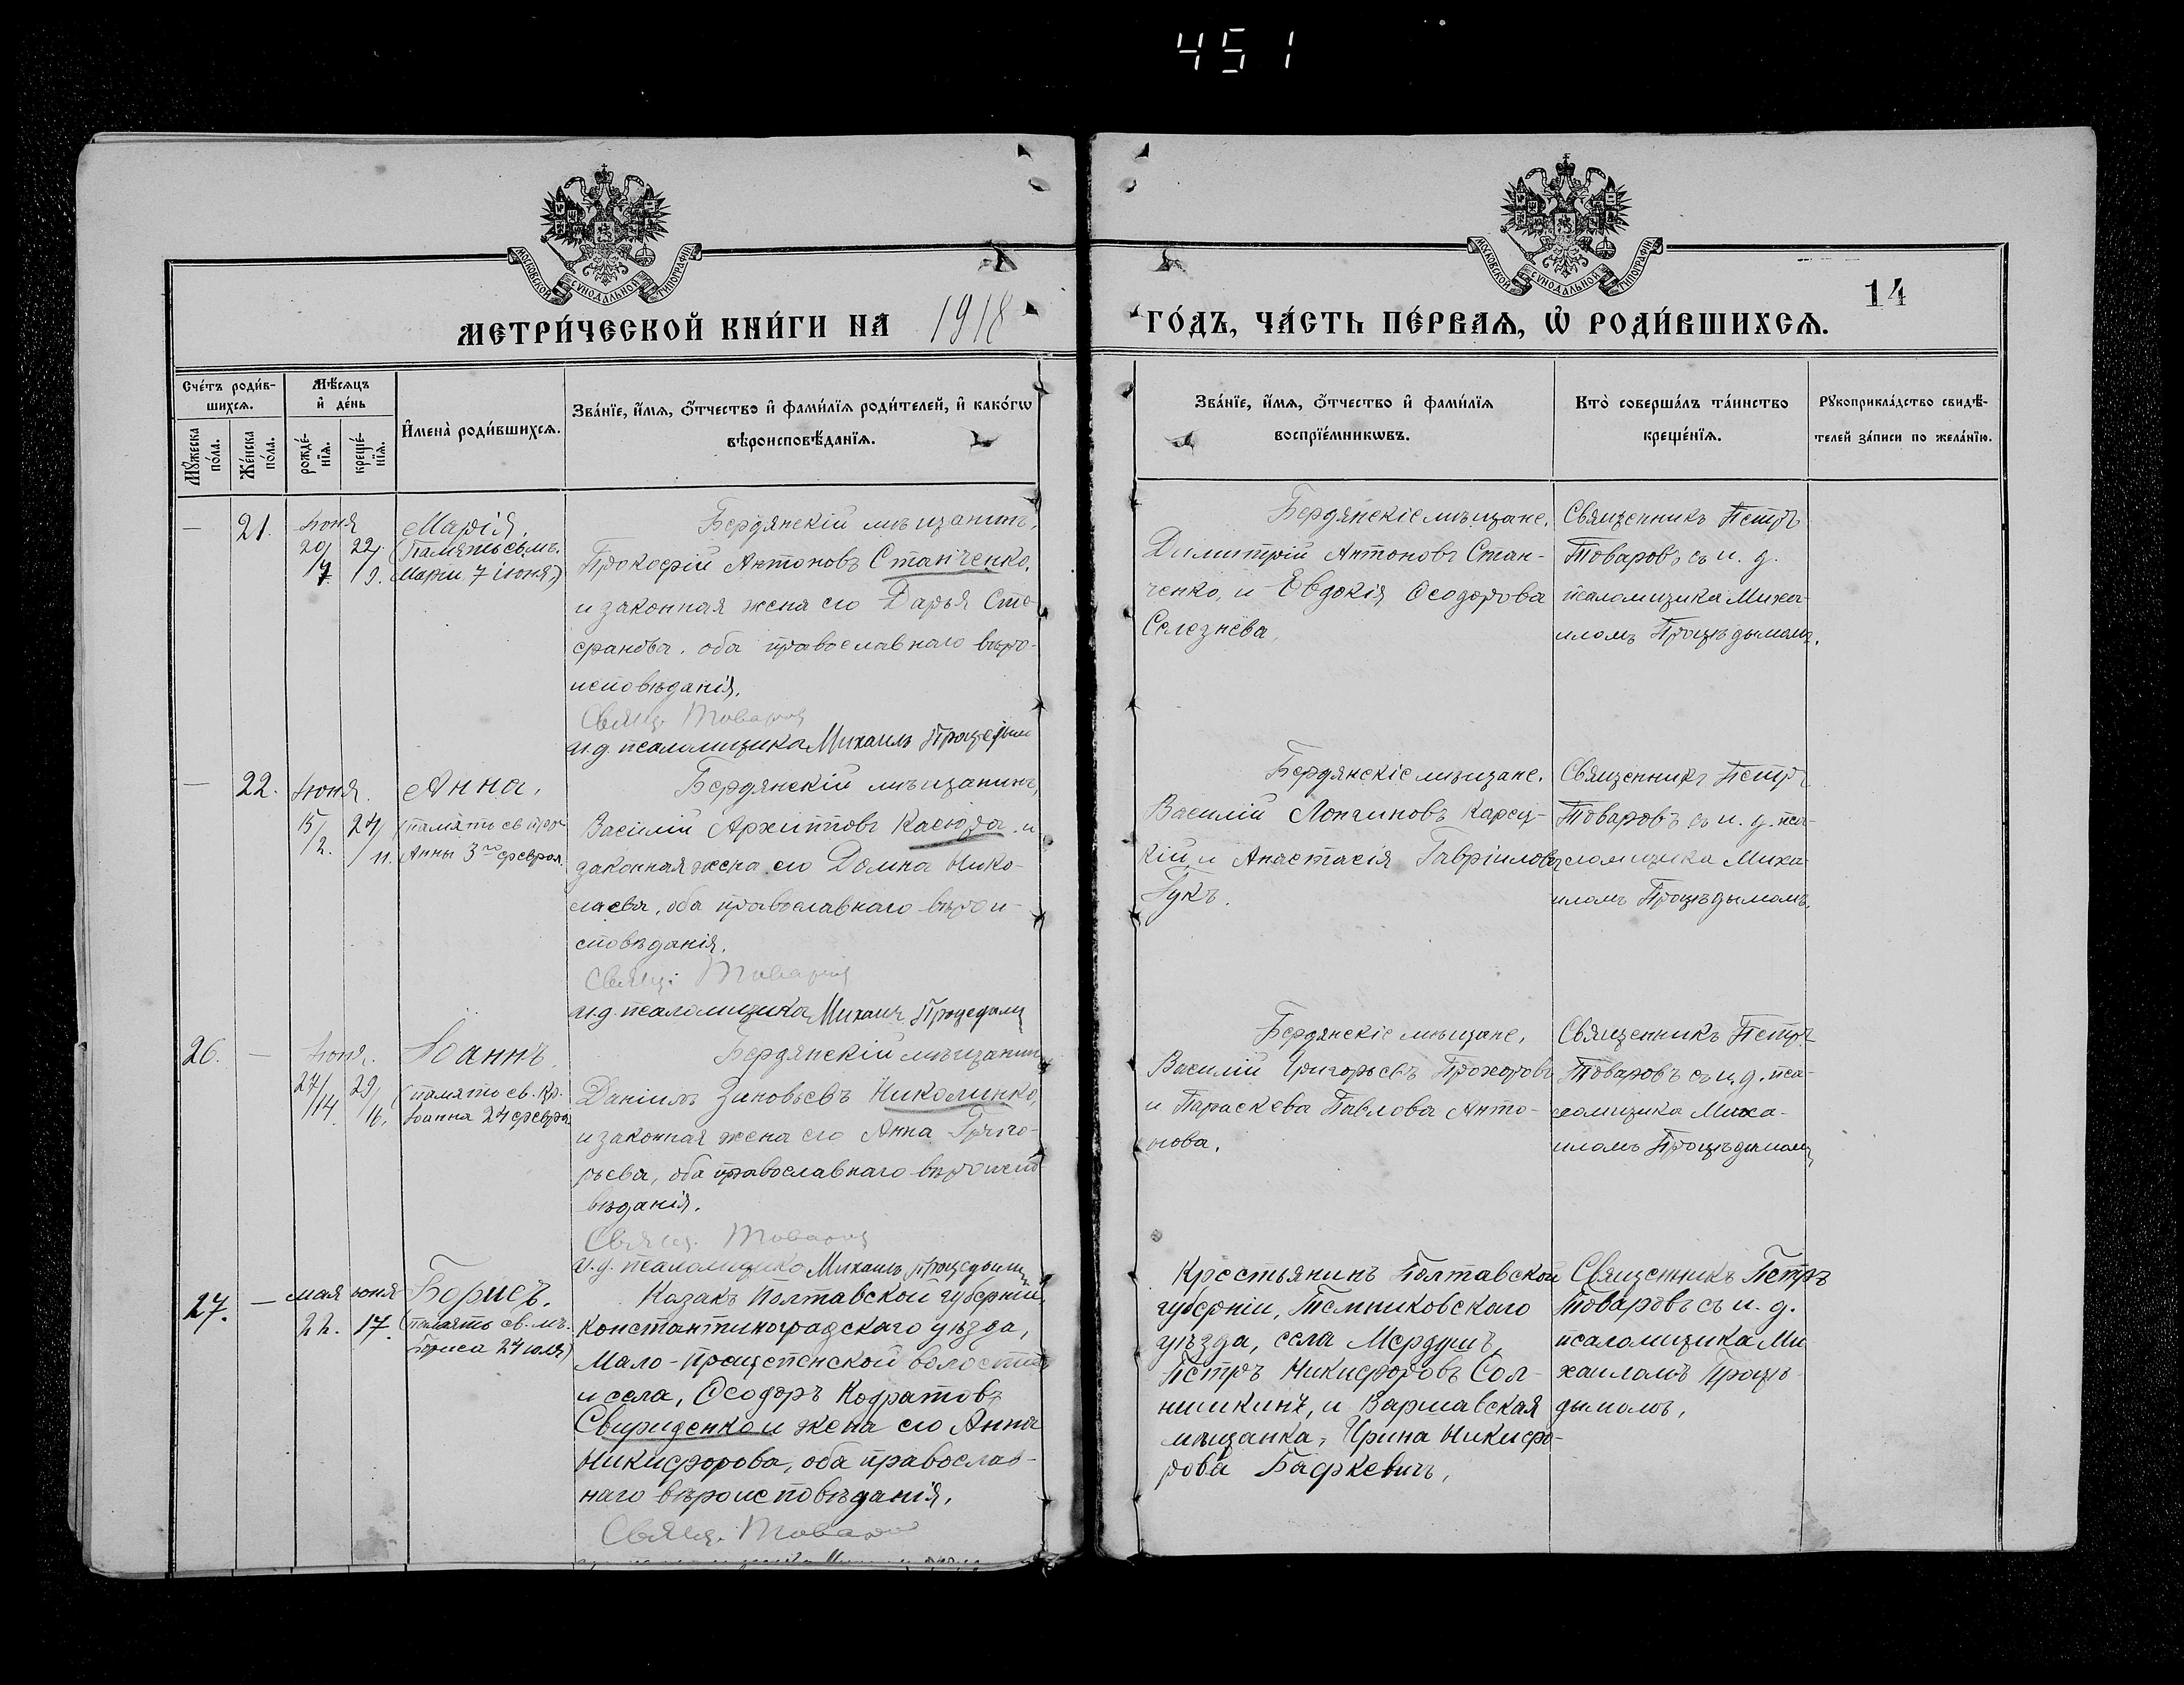 451
МОСКОВСКОЙ СУНОДАЛЬНОЙ ТИПОГРАФІИ
МОСКОВСКОЙ СУНОДАЛЬНОЙ ТИПОГРАФІИ
14
МЕТРИ́ЧЕСКОЙ КНИ́ГИ НА 1918 ГО́ДЪ, ЧА́СТЬ ПЕ́РВАѦ, Ѡ҆ РОДИ́ВШИХСѦ.
Сче́тъ роди́в-
шихсѧ.
Мꙋ́жеска по́ла.
Же́нска по́ла.
Мѣ́сѧцъ
и҆ де́нь
рожде́-
нїѧ.
креще́-
нїѧ.
И҆мена̀ роди́вшихсѧ.
Зва́нїе, и҆́мѧ, ѻ҆́тчество и҆ фами́лїѧ роди́телей, и҆ како́гѡ
вѣроисповѣ́данїѧ.
Зва́нїе, и҆́мѧ, ѻ҆́тчество и҆ фами́лїѧ
воспрїе́мникѡвъ.
Кто̀ соверша́лъ та́инство
креще́нїѧ.
Рꙋкоприкла́дство свидѣ́-
телей за́писи по жела́нїю.
— 21.
Іюня
20/7 22/9.
Марія.
(память св. мч.
Маріи 7 іюня)
Бердянскій мѣщанинъ,
Прокофій Антоновъ Станченко,
и законная жена его Дарья Сте-
фанова, оба православнаго вѣро-
исповѣданія.
Свящ. Товаровъ
и.д. псаломщика Михаилъ Процедымъ
Бердянскіе мѣщане,
Димитрій Антоновъ Стан-
ченко, и Евдокія Ѳеодорова
Селезнева,
Священникъ Петръ
Товаровъ съ и. д.
псаломщика Миха-
иломъ Процѣдымомъ.
— 22.
Іюня.
15/2. 24/11.
Анна,
(память св. про
Анны 3го феврал.
Бердянскій мѣщанинъ,
Василій Архиповъ Касюра, и
законная жена его Домна Нико-
лаева, оба православнаго вѣрои-
сповѣданія.
Свящ: Товаровъ
и.д. псаломщика Михаилъ Процедымъ
Бердянскіе мѣщане.
Василій Лонгиновъ
кій, и Анастасія Гавріилова
Гукъ.
Священникъ Петръ
Товаровъ съ и. д. пса-
ломщика Миха-
иломъ Процѣдымомъ,
26. —
Іюня.
27/14 29/16.
Іоаннъ.
(память св. Кр.
Іоанна 24 февра
Бердянскій мѣщанинъ
Даніилъ Зиновьевъ Николинко,
и законная жена его Анна Григо-
рьева, оба православнаго вѣроиспо
вѣданія.
Свящ. Товаровъ
и.д. псаломщика Михаилъ Процедымъ
Бердянскіе мѣщане,
Василій Григорьевъ Прохоровъ
и Параскева Павлова Анто-
нова.
Священникъ Петръ
Товаровъ съ и. д. пса-
ломщика Миха-
иломъ Процѣдымомъ
27. —
мая іюня
22. 17.
Борисъ.
(память св. мч.
Бориса 24 іюля)
Казакъ Полтавской губерніи,
Константиноградскаго уѣзда,
Мало-Прещепенской волости
и села, Ѳеодоръ Кодратовъ
Свириденко и жена его Анна
Никифорова, оба православ-
наго вѣроисповѣданія.
Свящ. Товаров
Крестьянинъ Полтавской
губерніи, Темниковскаго
уѣзда, села Мердушъ,
Петръ Никифоровъ Сол-
нышкинъ, и Варшавская
мѣщанка, Ирина Никифо-
рова Бафкевичъ,
Священникъ Петръ
Товаровъ съ и. д.
псаломщика Ми
хаиломъ Процѣ-
дымомъ,